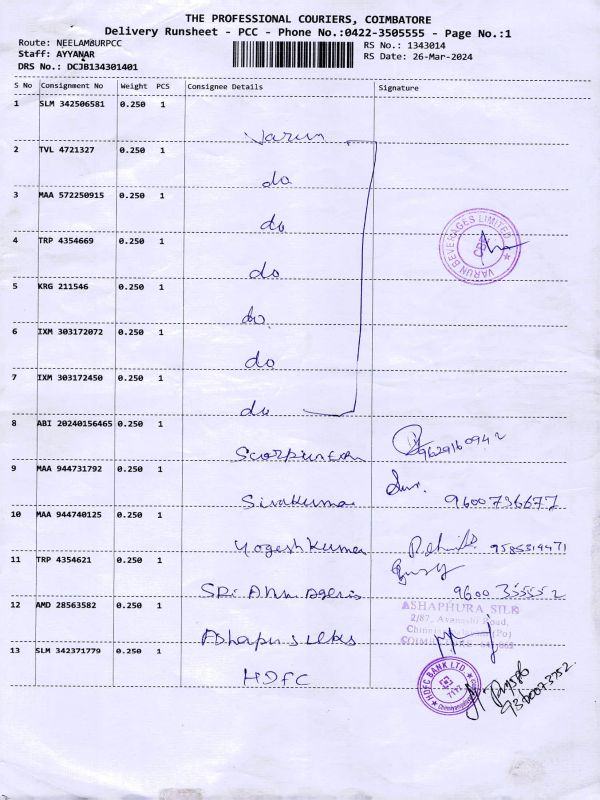 THE PROFESSIONAL COURIERS, COIMBATORE
Delivery Runsheet - PCC - Phone No.:0422-3505555 - Page No.:1
Route: NEELAMBURPCC
RS No.: 1343014
Staff: AYYANAR
RS Date: 26-Mar-2024
DRS No.: DCJB134301401
S No Consignment No Weight PCS Consignee Details Signature
1 SLM 342506581 0.250 1
Varun
2 TVL 4721327 0.250 1
do
3 MAA 572250915 0.250 1
do
VARUN BEVERAGES LIMITED
4 TRP 4354669 0.250 1
do
5 KRG 211546 0.250 1
do
6 IXM 303172072 0.250 1
do
7 IXM 303172450 0.250 1
do
8 ABI 20240156465 0.250 1
9629160942
9 MAA 944731792 0.250 1
Sivakumar 9600736677
10 MAA 944740125 0.250 1
Yogesh Kumar 9585314471
11 TRP 4354621 0.250 1
9600355552
12 AMD 28563582 0.250 1
ASHAPHURA SILK
2/87, Avanashi Road,
13 SLM 342371779 0.250 1
HDFC
HDFC BANK LTD.